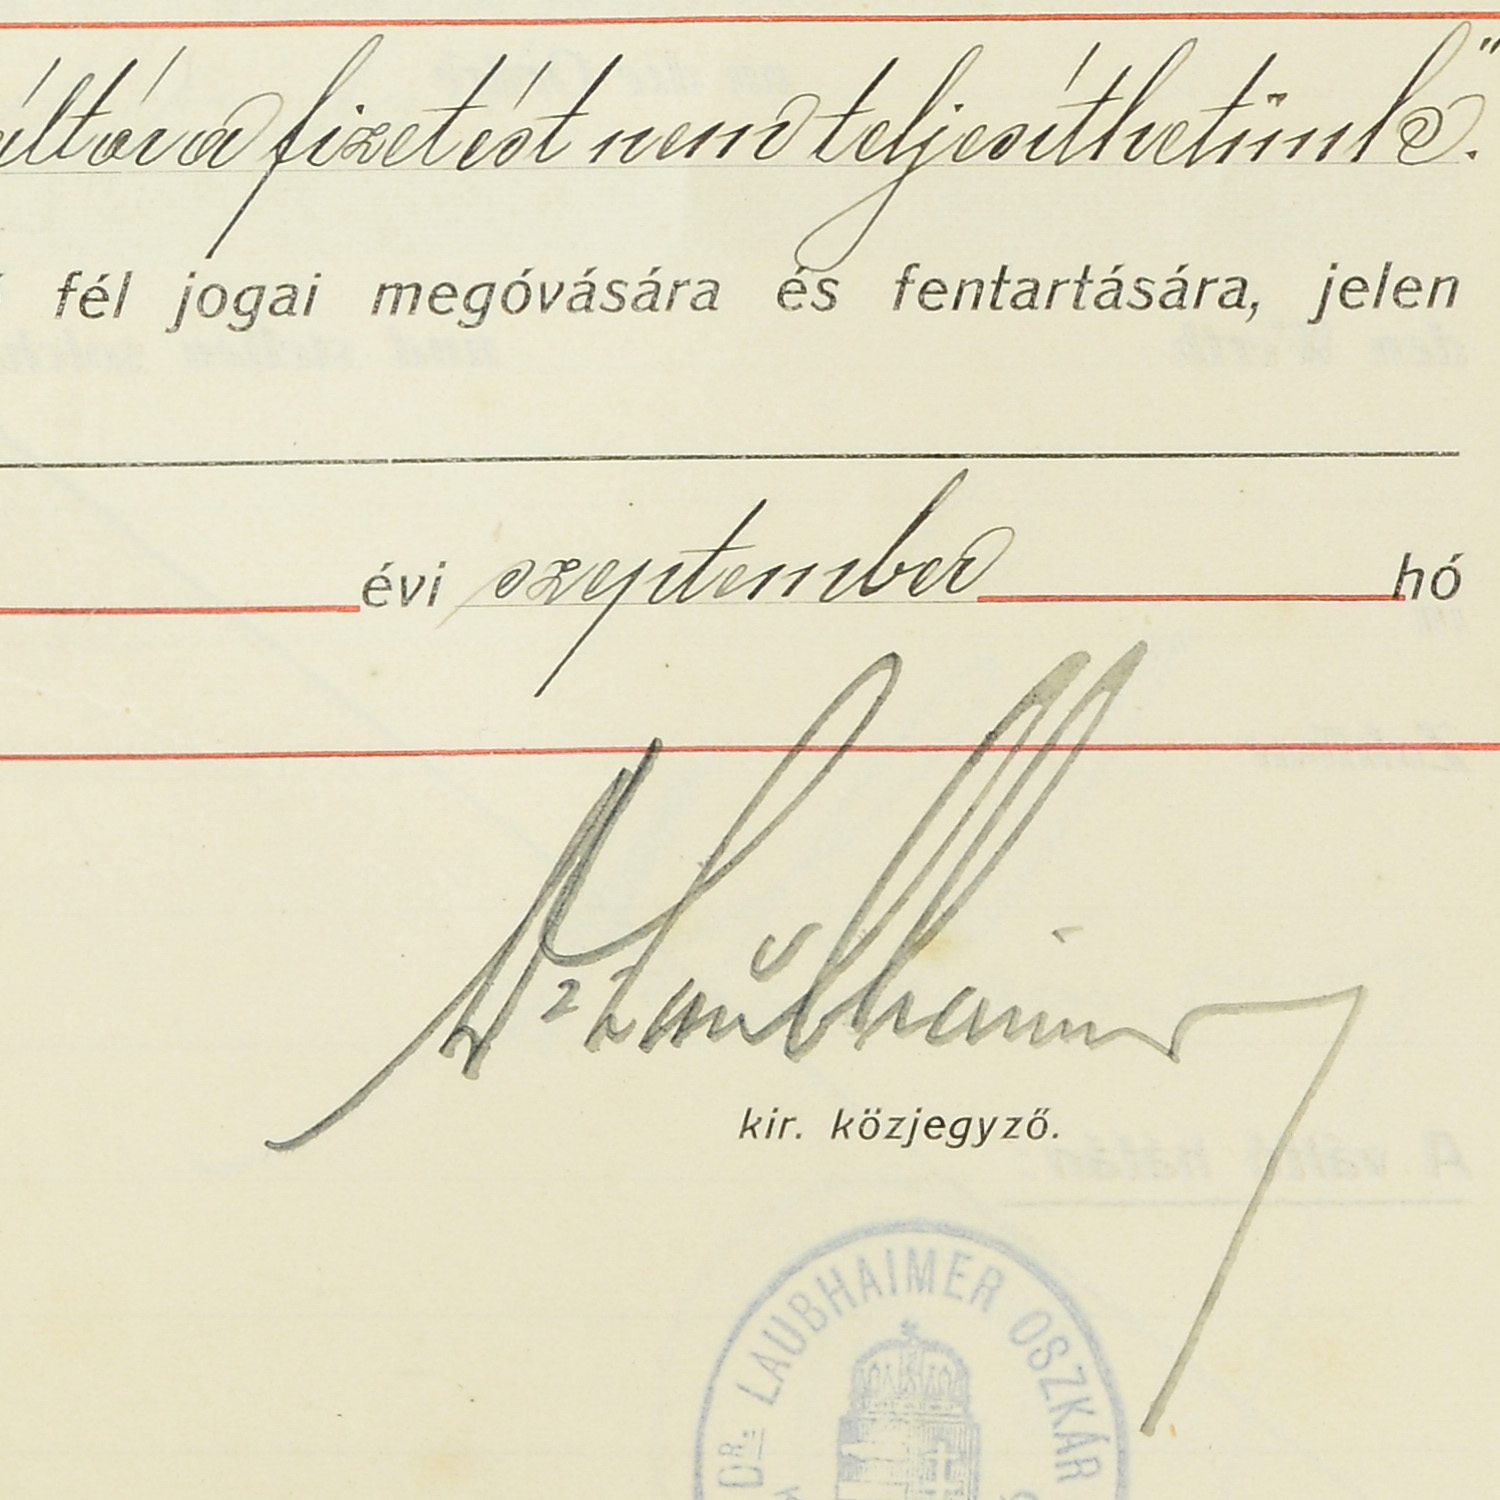 váltóra a fizetést nem teljesíthetünk."
fél jogai megóvására és fentartására, jelen
évi szeptember hó
Dr Laubhaimer
kir. közjegyző.
DR. LAUBHAIMER OSZKÁR